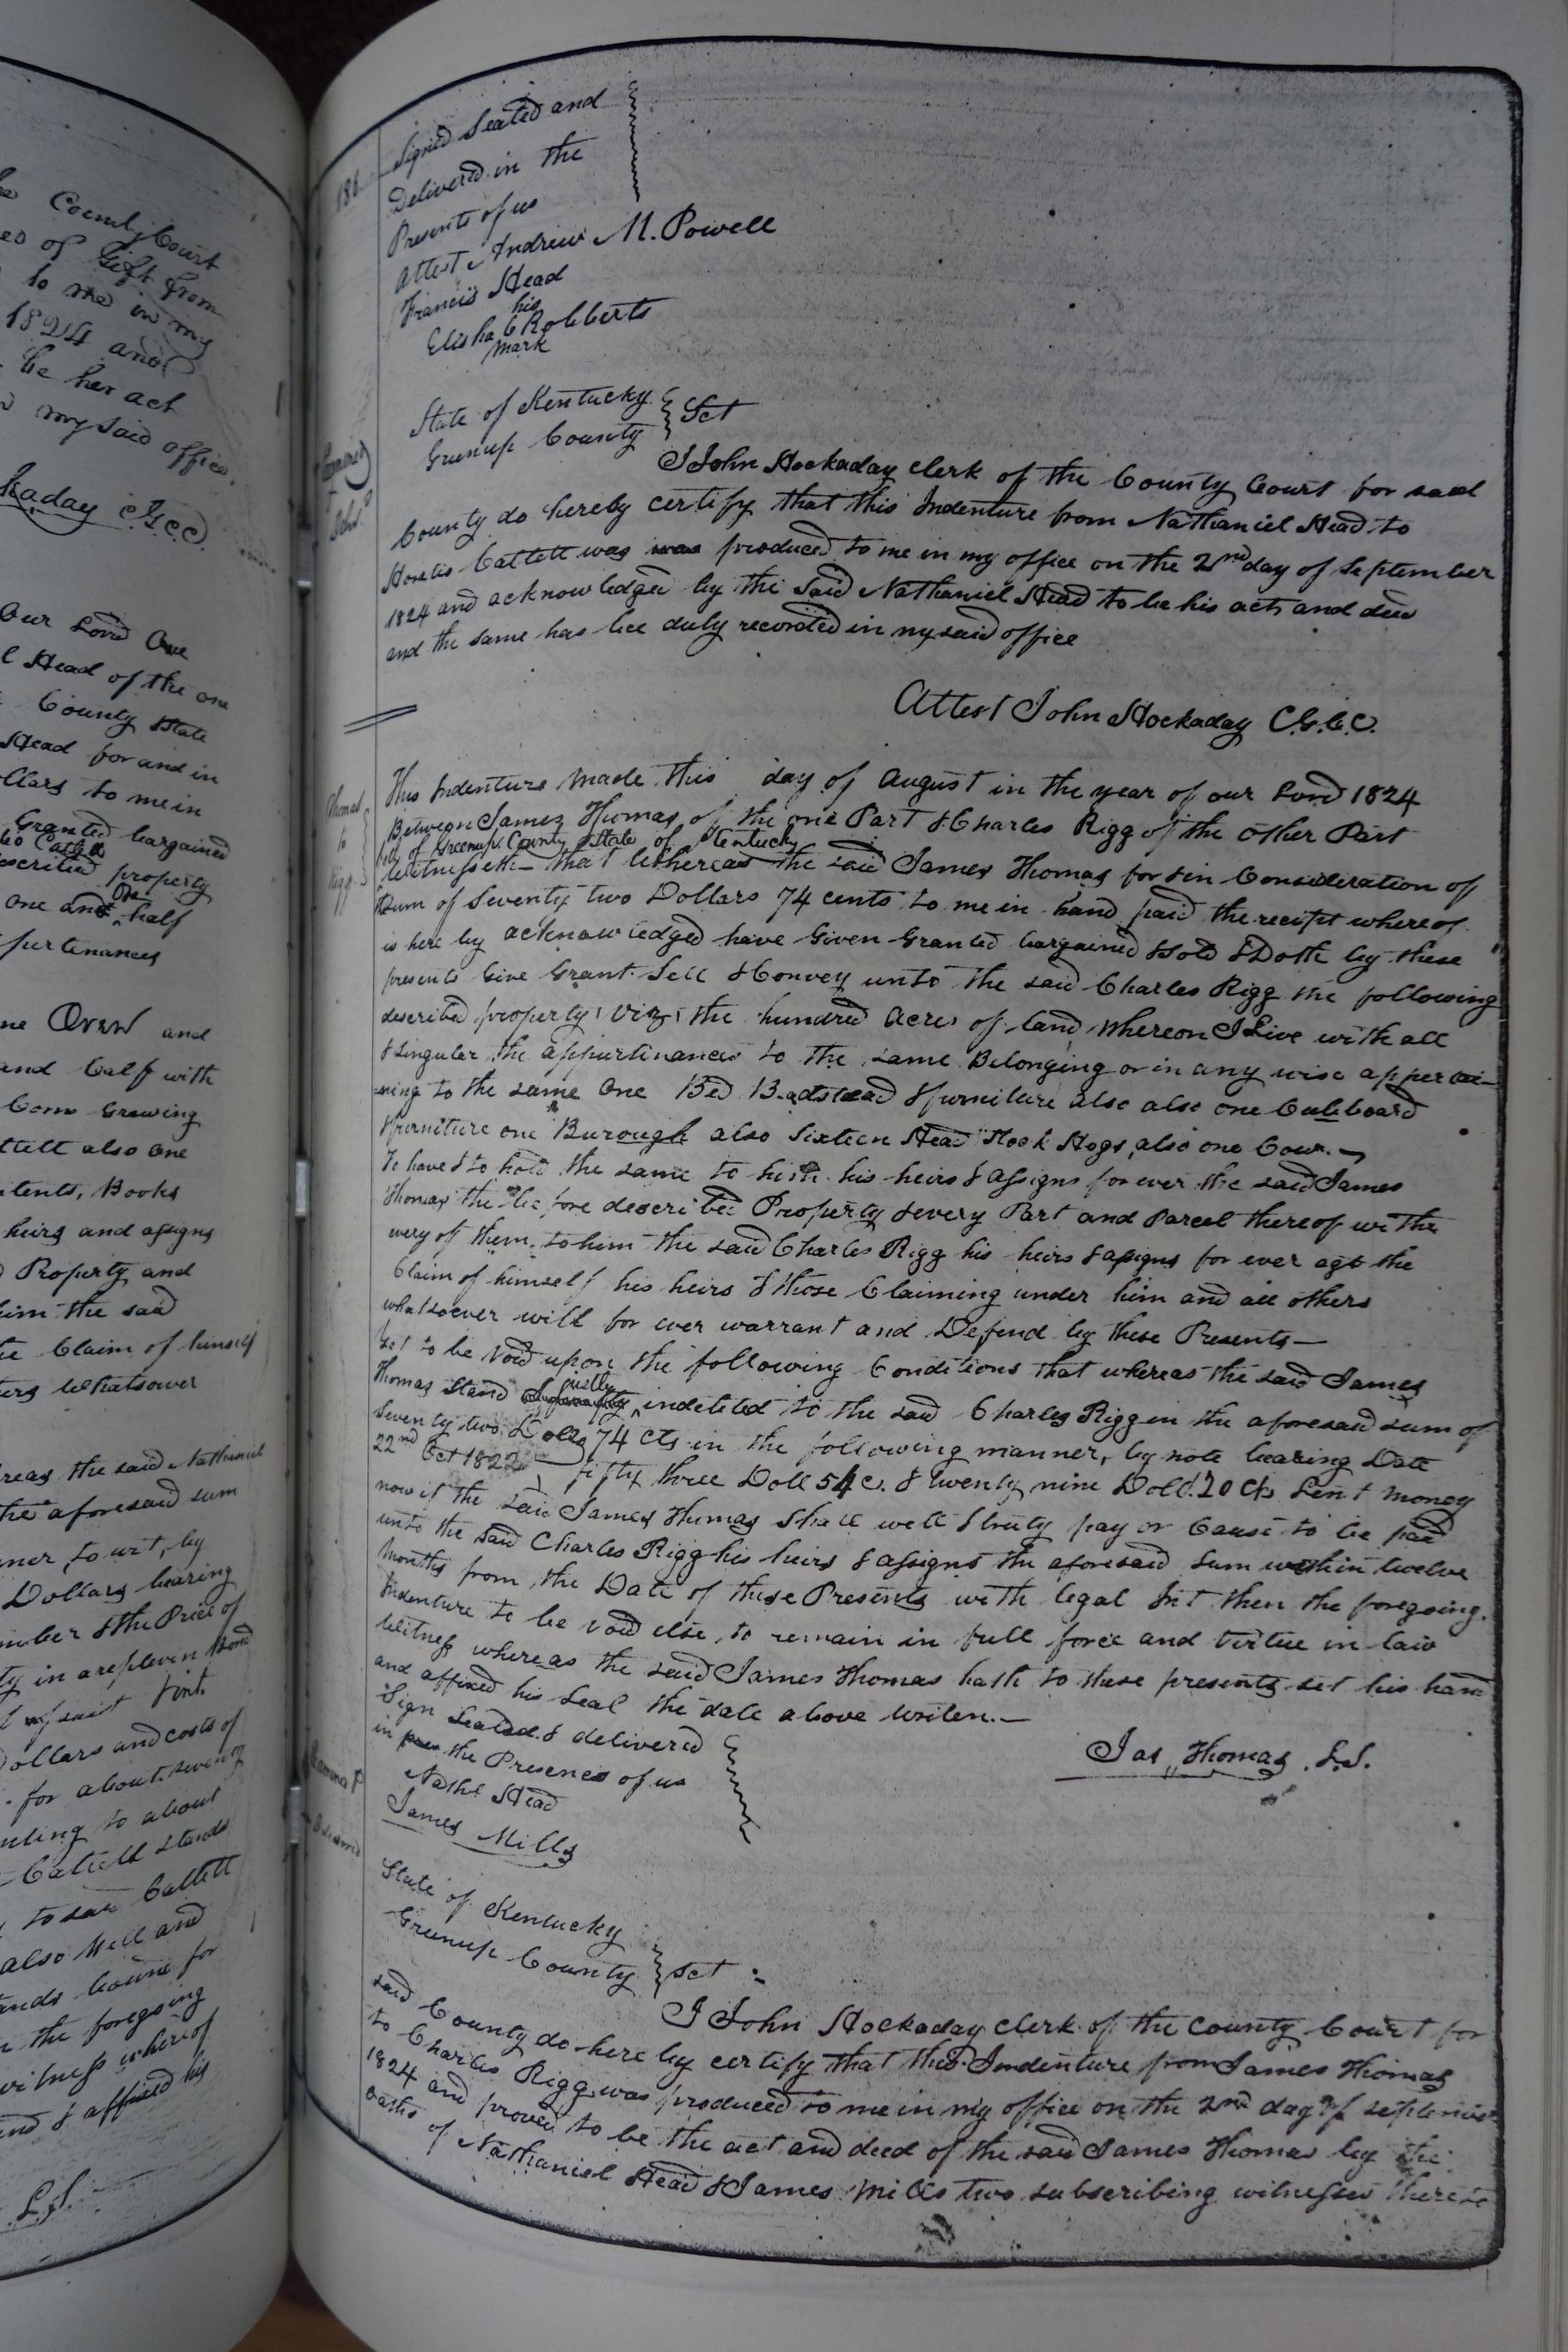 County Court
of Gift from
to me in my
1824 and
be her act
my said office
kaday C.G.C.C.
Our Lord One
Head of the one
County State
Head for and in
llars to me in
Granted bargained
described property
one and One half
purtenances
One Oven and
and Calf with
Corn Growing
ttell also One
tents, Books
heirs and assigns
Property and
him the said
the Claim of himself
ers Whatsower
reas the said Nathaniel
the aforesaid sum
ner, to wit, by
Dollars bearing
mber & the Price of
ty in a replevin bond
Dollars and costs of
for about seven of
nting to about
Catlett stands
Catlett
also Well and
ands bound for
the foregoing
witness whereof
and & affixed his
L.S.
186
Signed Sealed and
Delivered in the
Presents of us
Attest Andrew M. Powell
Francis Head
his
Elisha C Robberts
mark
State of Kentucky
Greenup County } Sct
I John Hockaday clerk of the County Court for said
County do hereby certify that this Indenture from Nathaniel Head to
Horatio Catlett was was produced to me in my office on the 2nd day of September
1824 and acknowledged by the said Nathaniel Head to be his act and deed
and the same has bee duly recorded in my said office
Attest John Hockaday C.G.C.C.
Thomas
to
Rigg
This Indenture Made this day of August in the year of our Lord 1824
Between James Thomas of the one Part & Charles Rigg of the Other Part
all of Greenup County State of Kentucky
Witnesseth – that Whereas the said James Thomas for & in Consideration of
Sum of Seventy two Dollars 74 cents to me in hand paid the receipt whereof
is here by acknowledged have Given Granted bargained & Sold & Doth by these
presents Give Grant Sell & Convey unto the said Charles Rigg the following
described property, viz, the hundred Acres of land Whereon I Live with all
& Singular the appurtinances to the same Belonging or in any wise appertai–
ning to the same One Bed Badstead & furniture also also one Cubboard
& furniture one Burough also Sixteen Head Stock Hogs also one Cow.
To have & to hold the same to him his heirs & Assigns for ever the said James
Thomas the be fore described Property & every Part and Parcel thereof with
every of them to him the said Charles Rigg his heirs & assigns for ever agt the
Claim of himself his heirs & those Claiming under him and all others
whatsoever will for ever warrant and Defend by these Presents—
Yet to be Void upon the following Conditions that whereas the said James
justly
Thomas Stand indebted to the said Charles Rigg in the aforesaid sum of
Seventy two Dolls 74 cts in the following manner, by note bearing Date
22nd Oct 1822 fifty three Doll 54 c. & twenty nine Doll. 20 Cts Lent money
now if the said James Thomas Shall well & truly pay or Cause to be paid
unto the said Charles Rigg his heirs & assigns the aforesaid Sum within twelve
Months from the Date of these Presents with legal Int then the foregoing
Indenture to be void else to remain in full force and virtue in law
Witness whereas the said James Thomas hath to these presents set his hand
and affixed his Seal the date above writen.—
Sign Sealed & delivered
in the Presence of us
Jas Thomas L.S.
Nathl Head
James Mills
State of Kentucky
Greenup County } Sct
I John Hockaday clerk of the County Court for
said County do here by certify that this Indenture from James Thomas
to Charles Rigg was produced to me in my office on the 2nd day of September
1824 and proved to be the act and deed of the said James Thomas by the
oaths of Nathaniel Head & James Mills two subscribing witnesses thereto